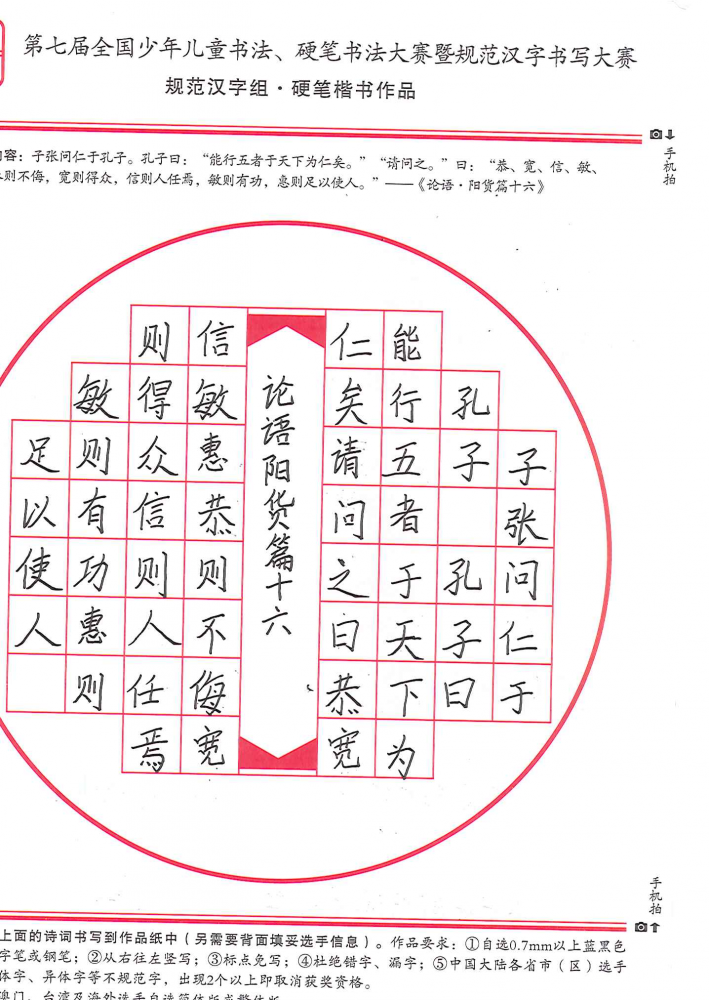 第七届全国少年儿童书法、硬笔书法大赛暨规范汉字书写大赛
规范汉字组·硬笔楷书作品
手机拍
容：子张问仁于孔子。孔子曰：“能行五者于天下为仁矣。”“请问之。”曰：“恭、宽、信、敏、
则不侮，宽则得众，信则人任焉，敏则有功，惠则足以使人。”——《论语·阳货篇十六》
子张问仁于
孔子 孔子曰
能行五者于天下为
仁矣请问之曰恭宽
论语阳货篇十六
信敏惠恭则不侮宽
则得众信则人任焉
敏则有功惠则
足以使人
手机拍
上面的诗词书写到作品纸中（另需要背面填妥选手信息）。作品要求：①自选0.7mm以上蓝黑色
字笔或钢笔；②从右往左竖写；③标点免写；④杜绝错字、漏字；⑤中国大陆各省市（区）选手
体字、异体字等不规范字，出现2个以上即取消获奖资格。